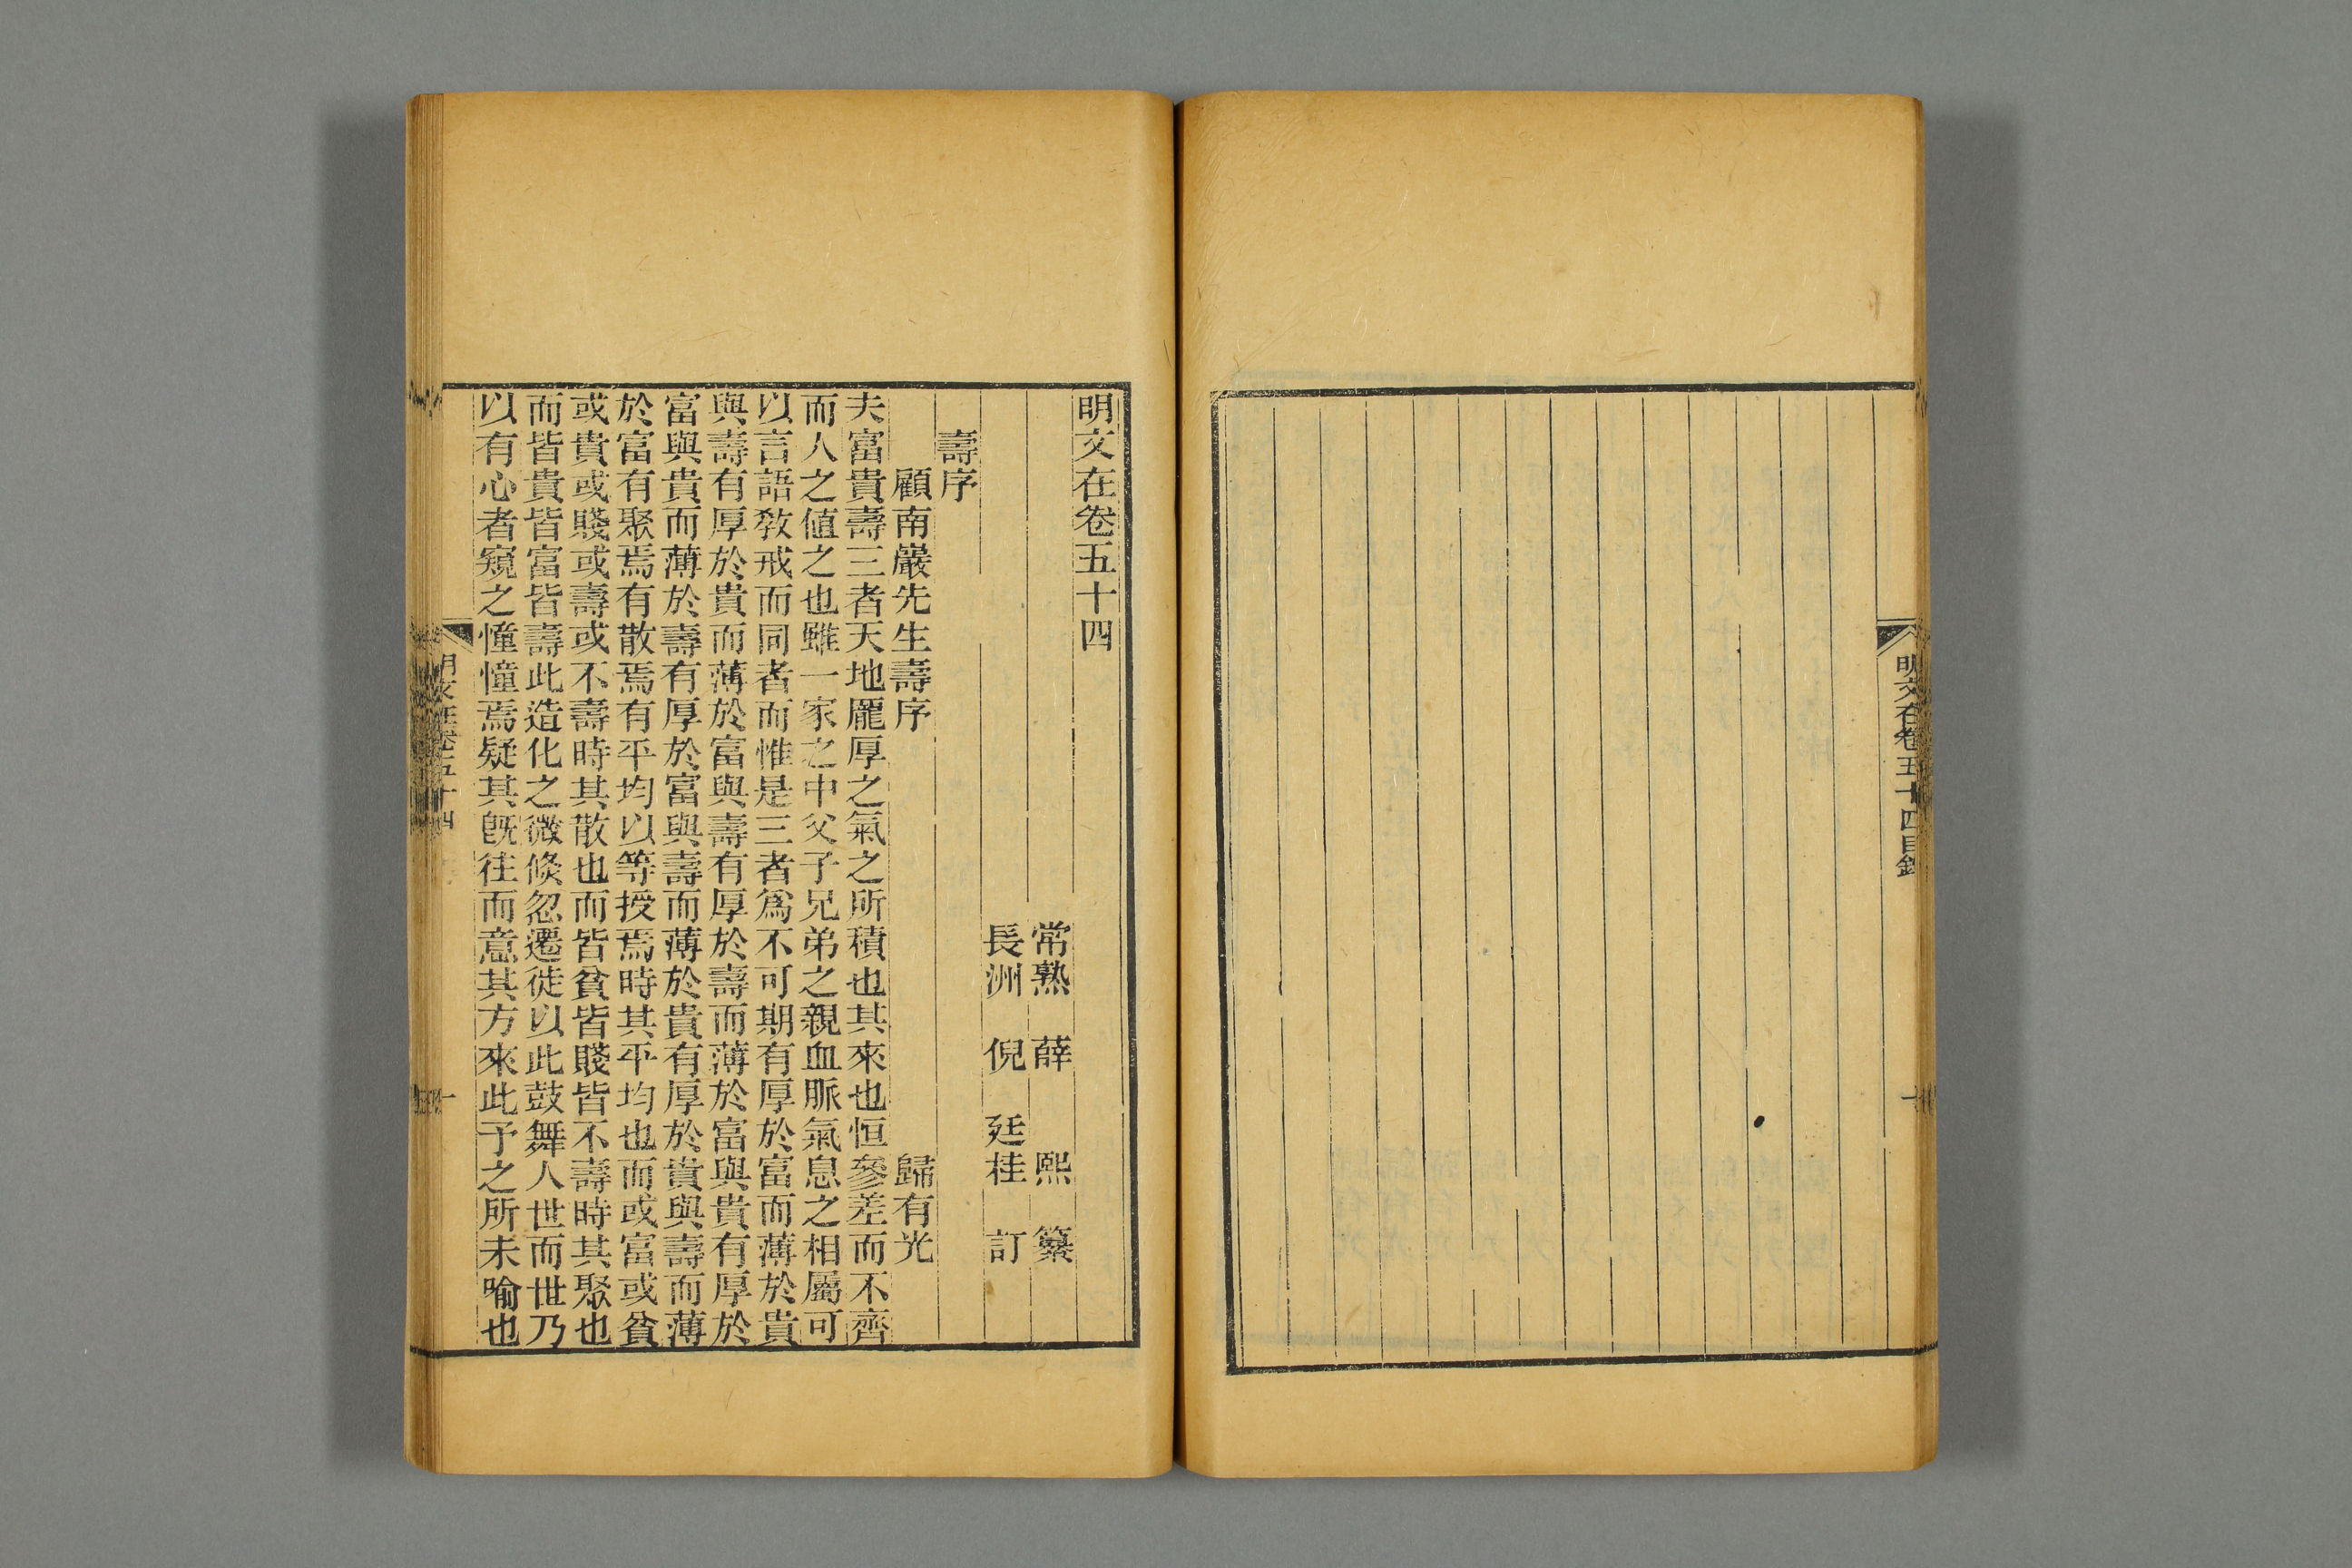 明文在卷五十四目錄
一
明文在卷五十四
常熟　薛　熙　纂
長洲　倪　廷桂　訂
壽序
顧南巖先生壽序　歸有光
夫富貴壽三者天地厖厚之氣之所積也其來也恒參差而不齊
而人之値之也雖一家之中父子兄弟之親血脈氣息之相屬可
以言語敎戒而同者而惟是三者爲不可期有厚於富而薄於貴
與壽有厚於貴而薄於富與壽有厚於壽而薄於富與貴有厚於
富與貴而薄於壽有厚於富與壽而薄於貴有厚於貴與壽而薄
於富有聚焉有散焉有平均以等授焉時其平均也而或富或貧
或貴或賤或壽或不壽時其散也而皆貧皆賤皆不壽時其聚也
而皆貴皆富皆壽此造化之微倐忽遷徙以此鼓舞人世而世乃
以有心者窺之憧憧焉疑其旣往而意其方來此予之所未喻也
明文在卷五十四
一